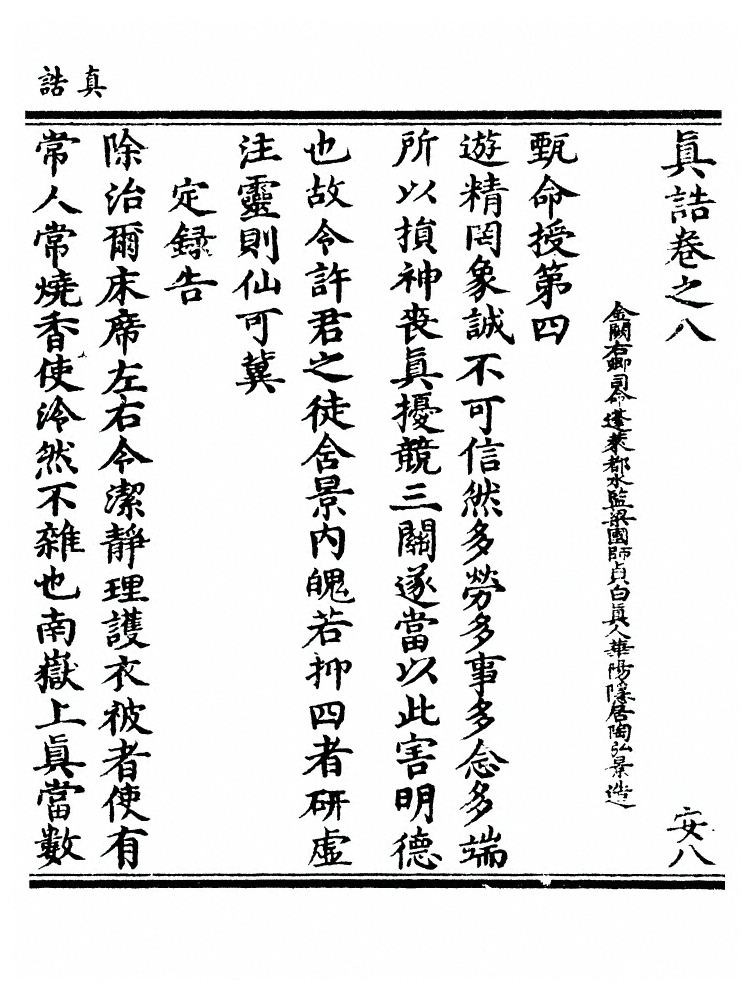 真誥
眞誥卷之八　安八
金闕右卿司命蓬萊都水監梁國師貞白眞人華陽隱居陶弘景造
甄命授第四
遊精罔象誠不可信然多勞多事多念多端
所以損神喪眞擾競三關遂當以此害明德
也故令許君之徒含景內魄若抑四者研虛
注靈則仙可冀
定録告
除治爾床席左右令潔靜理護衣被者使有
常人常燒香使泠然不雜也南嶽上眞當數